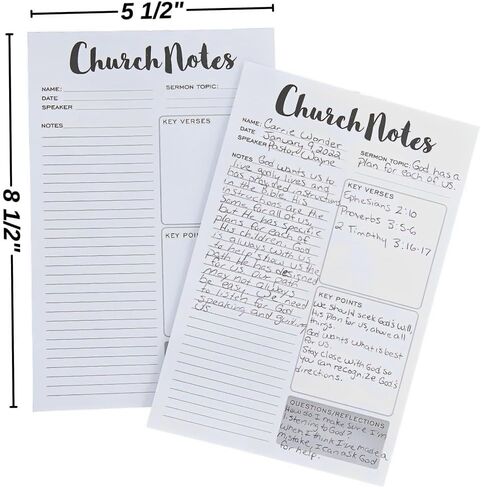 5 1/2"
8 1/2"
Church Notes
NAME:
DATE
SPEAKER
SERMON TOPIC:
NOTES
KEY VERSES
KEY POINTS
Church Notes
NAME: Carrie Wonder
DATE January 9, 2022
SPEAKER Pastor Wayne
SERMON TOPIC: God has a
plan for each of us.
NOTES God wants us to
live godly lives and
has provided instruction
in the Bible. His
instructions are the
same for all of us.
But He has specific
plans for each of
His children. God
is always with us
to help show us the
path He has designed
for us. Our path
may not always
be easy. We need
to listen for God
speaking and guiding
us.
KEY VERSES
Ephesians 2:10
Proverbs 3:5-6
2 Timothy 3:16-17
KEY POINTS
We should seek God's will,
His plan for us, above all
things.
God wants what is best
for us.
Stay close with God so
you can recognize God's
directions.
QUESTIONS/REFLECTIONS
How do I make sure I'm
listening to God?
When I think I've made a
mistake, I can ask God
for help.